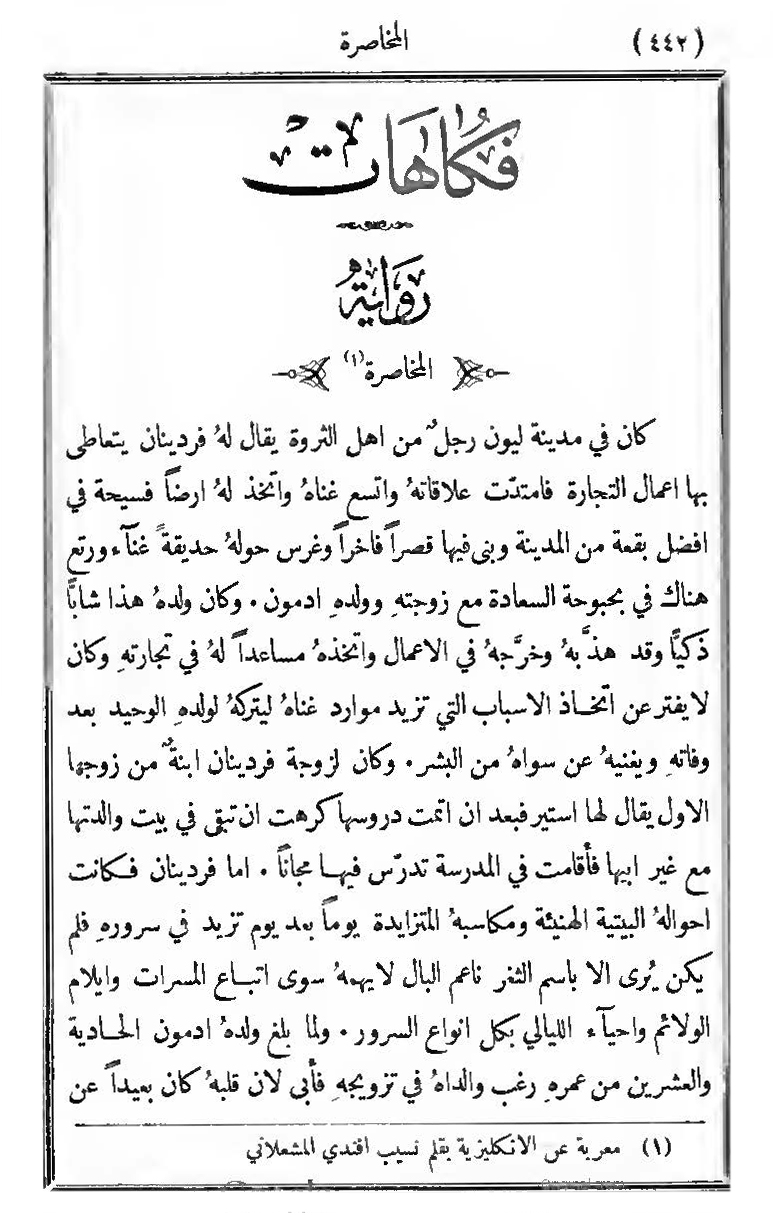 (٤٤٢)
المخاصرة
فكاهات
رواية
المخاصرة (١)
كان في مدينة ليون رجلٌ من اهل الثروة يقال لهُ فردينان يتعاطى
بها اعمال التجارة فامتدّت علاقاتهُ واتسع غناهُ واتخذ لهُ ارضاً فسيحة في
افضل بقعة من المدينة وبنى فيها قصراً فاخراً وغرس حولهُ حديقةً غنآء ورتع
هناك في بحبوحة السعادة مع زوجتهِ وولدهِ ادمون . وكان ولدهُ هذا شابًّا
ذكيًّا وقد هذّبهُ وخرَّجهُ في الاعمال واتخذهُ مساعداً لهُ في تجارتهِ وكان
لا يفتر عن اتخاذ الاسباب التي تزيد موارد غناهُ ليتركهُ لولدهِ الوحيد بعد
وفاتهِ ويغنيهُ عن سواهُ من البشر . وكان لزوجة فردينان ابنةٌ من زوجها
الاول يقال لها استير فبعد ان اتمت دروسها كرهت ان تبقى في بيت والدتها
مع غير ابيها فأقامت في المدرسة تدرّس فيها مجاناً . اما فردينان فكانت
احوالهُ البيتية الهنيئة ومكاسبهُ المتزايدة يوماً بعد يوم تزيد في سرورهِ فلم
يكن يُرى الا باسم الثغر ناعم البال لا يهمهُ سوى اتباع المسرات وايلام
الولائم واحيآء الليالي بكل انواع السرور . ولما بلغ ولدهُ ادمون الحادية
والعشرين من عمرهِ رغب والداهُ في تزويجهِ فأبى لان قلبهُ كان بعيداً عن
(١) معربة عن الانكليزية بقلم نسيب افندي المشعلاني